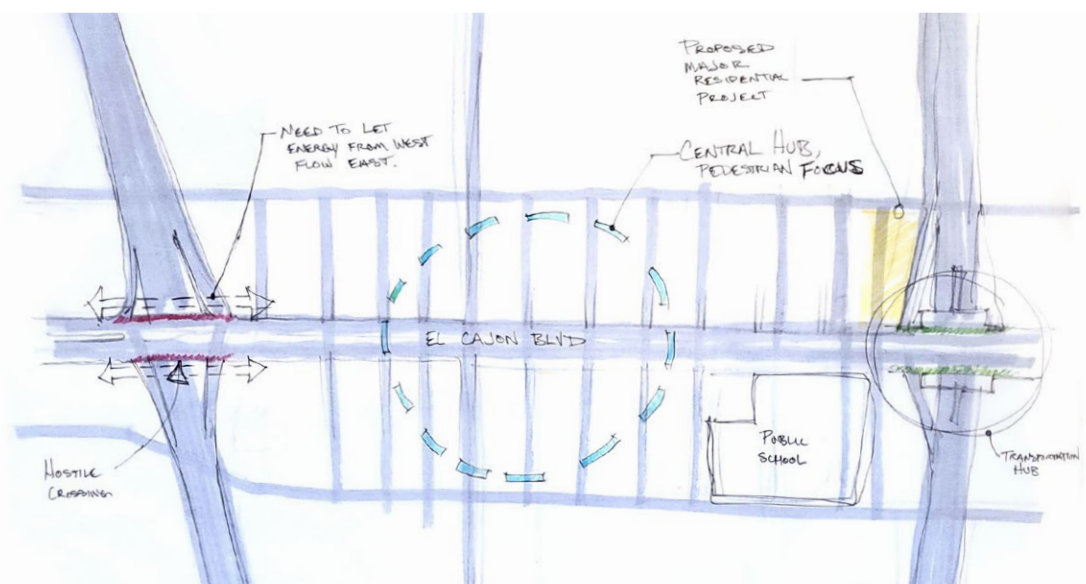 PROPOSED
MAJOR
RESIDENTIAL
PROJECT
NEED TO LET
ENERGY FROM WEST
FLOW EAST.
CENTRAL HUB,
PEDESTRIAN FOCUS
EL CAJON BLVD
PUBLIC
SCHOOL
HOSTILE
CROSSING
TRANSPORTATION
HUB